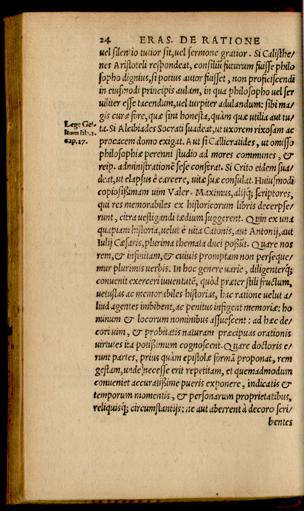 24 ERAS. DE RATIONE
uel silentio tutior sit, uel sermone gratior. Si Calisthe-
nes Aristoteli respondeat, consiliũ futurum fuisse philo
sopho dignius, si potius autor fuisset, non proficiscendi
in eiusmodi principis aulam, in qua philosopho uel ser
uiliter esse tacendum, uel turpiter adulandum: sibi ma-
gis curæ fore, quæ sint honesta, quàm quæ utilia aut tu
Lege Gel-
lium lib.1.
cap.17.
ta. Si Alcibiades Socrati suadeat, ut uxorem rixosam ac
procacem domo exigat. Aut si Callicratides, ut omisso
philosophiæ perenni studio ad mores communes, &
reip. administrationẽ sese conferat. Si Crito eidem sua-
deat, ut elapsus è carcere, uitæ suæ consulat. Huiusmodi
copiosissimam uim Valer. Maximus, alijq; scriptores,
qui res memorabiles ex historicorum libris decerpse-
runt, citra uestigandi tædium suggerent. Quin ex una
quapiam historia, uelut è uita Catonis, aut Antonij, aut
Iulij Cæsaris, plurima themata duci possũt. Quare nos
rem, & infinitam, & cuiuis promptam non perseque-
mur plurimis uerbis. In hoc genere uarie, diligenterq;
conuenit exerceri iuuentutẽ, quòd præter stili fructum,
uetustas ac memorabiles historias, hac ratione uelut a-
liud agentes imbibent, ac penitus infigent memoriæ: ho
minum & locorum nominibus assuescent: ad hæc de-
cori uim, & probitatis naturam præcipuas orationis
uirtutes ita potissimum cognoscent. Quare doctoris e-
runt partes, prius quàm epistolæ formã proponat, rem
gestam, unde necesse erit repetitam, et quemadmodum
conueniet accuratissime pueris exponere, indicatis &
temporum momentis, & personarum proprietatibus,
reliquisq; circumstantijs: ne aut aberrent à decoro scri
bentes